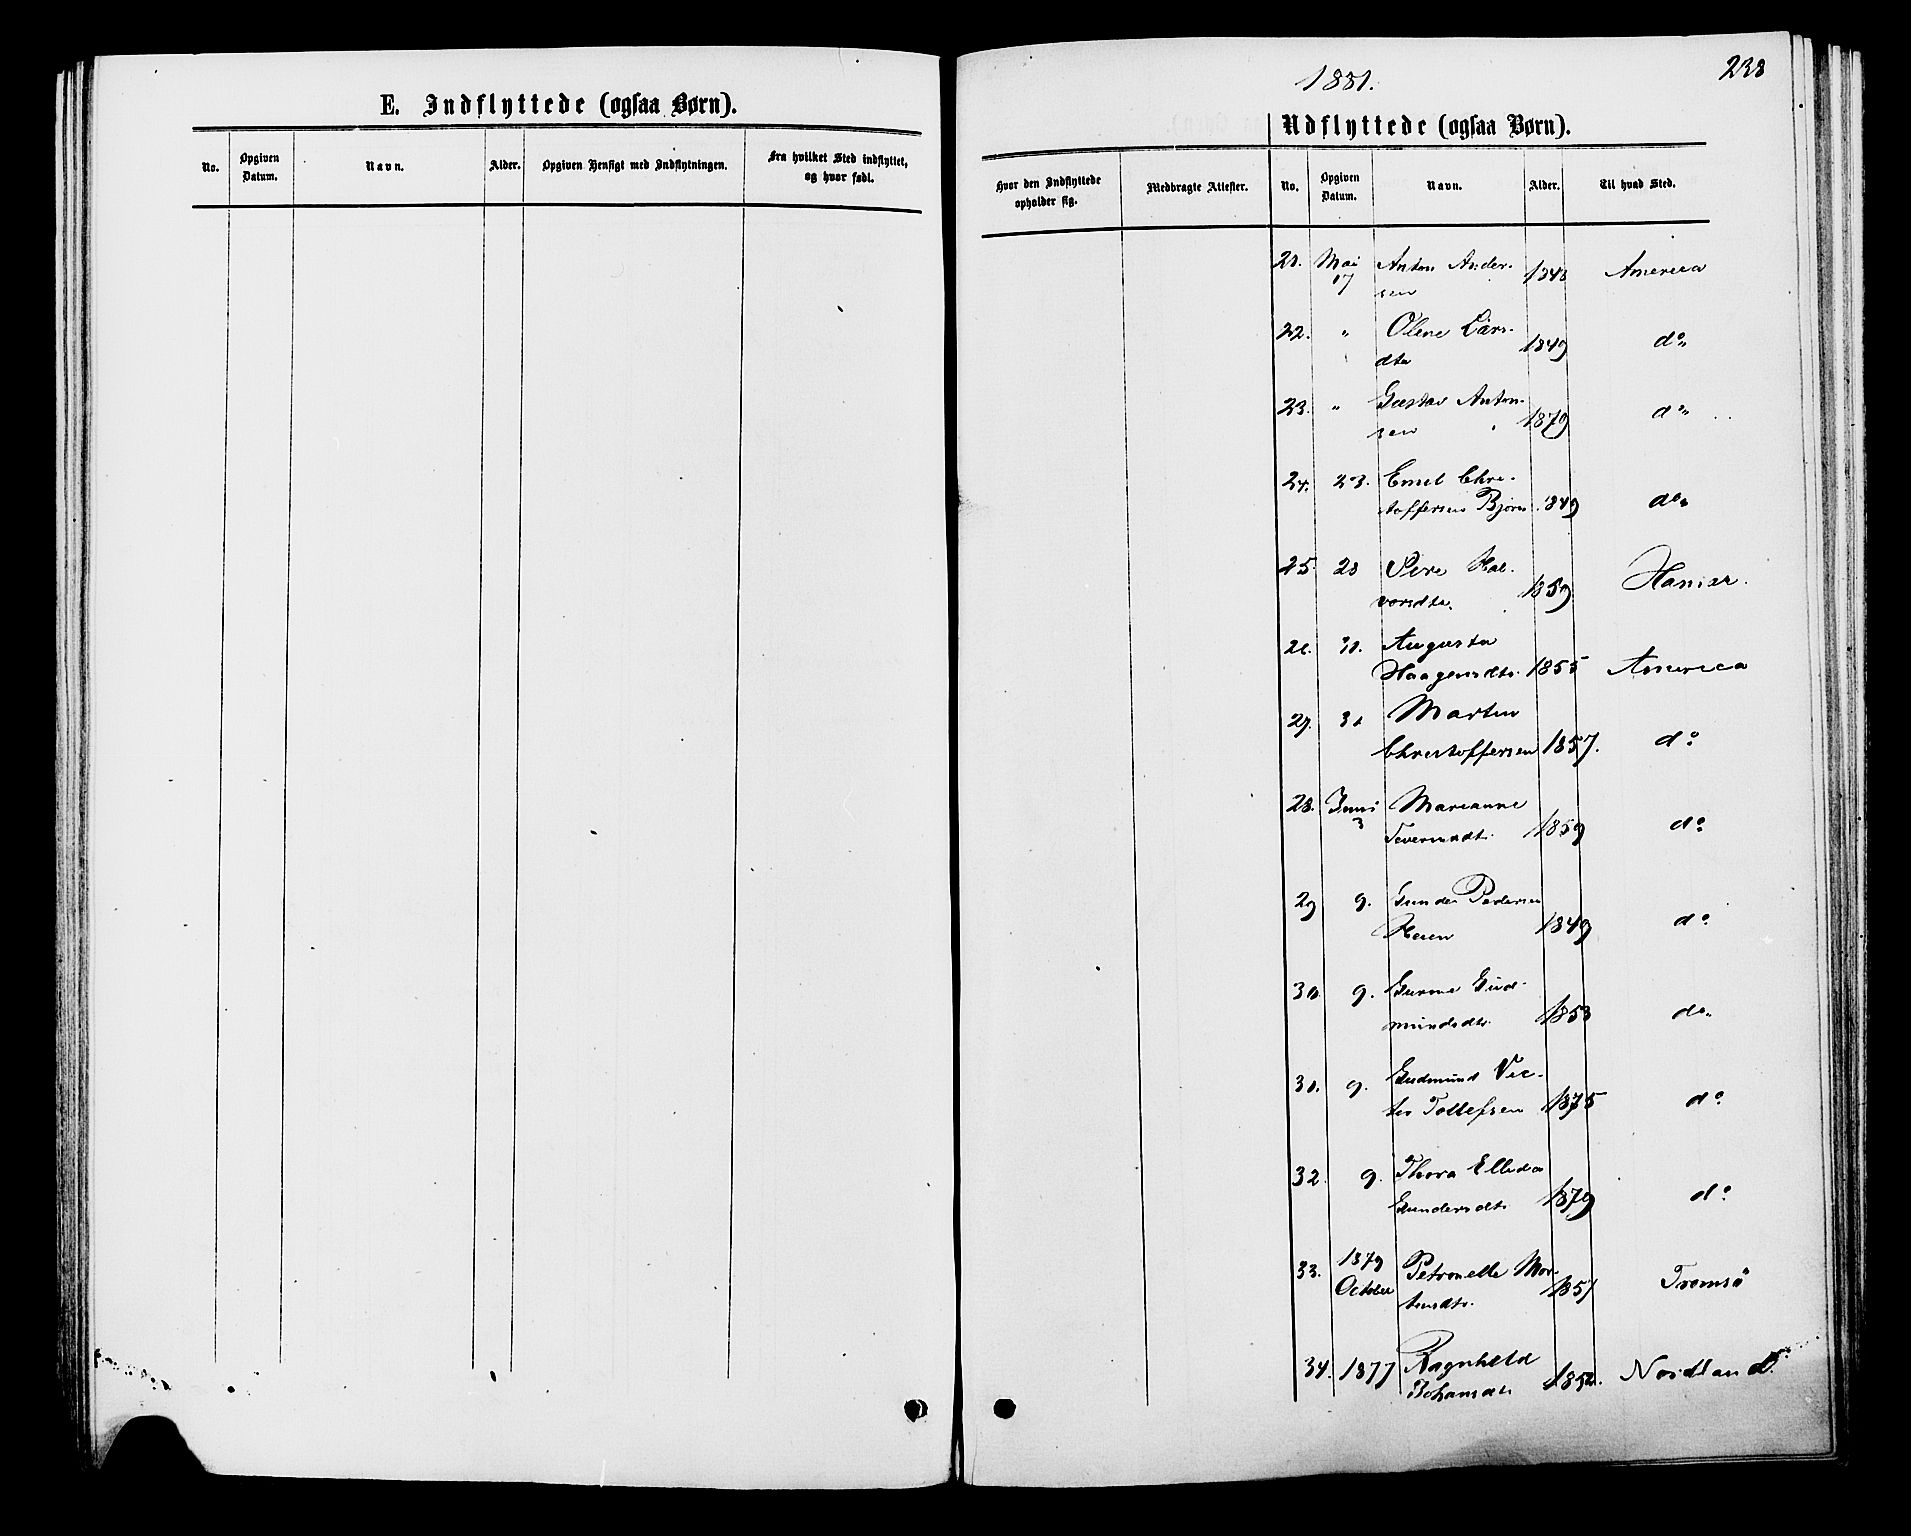 E. Indflyttede (ogsaa Børn).
No. Opgiven Datum. Navn. Alder. Opgiven Hensigt med Indflytningen. Fra hvilket Sted indflyttet, og hvor født.
1881.
238
Udflyttede (ogsaa Børn).
Hvor den Indflyttede opholder sig. Medbragte Attester. No. Opgiven Datum. Navn. Alder. Til hvad Sted.
21. Mai Anton Ander-
17 sen 1848 America
22. " Olene Lars-
dtr 1849 do
23. " Gustav Anton-
sen 1879 do
24. 23. Emil Chri-
stoffersen Bjørn 1849 do
25. 28 Hal-
vorsdtr. 1859
26. 31. Augusta
Haagensdtr. 1855 America
27. 31 Martin
Christoffersen 1857. do
28. Juni Marianne
3 1859 do
29 9. Gunder Pedersen
1849 do
30. 9. Gud-
mundsdtr. 1853 do
31. 9. Gudmund Vic-
tor Tollefsen 1875 do
32. 9. Thora Ellida
Gundersdtr. 1879 do
33. 1879 Petronelle Mor-
October tensdtr. 1857 Tromsö
34. 1877 Ragnhild
Johansdtr. Nordland.